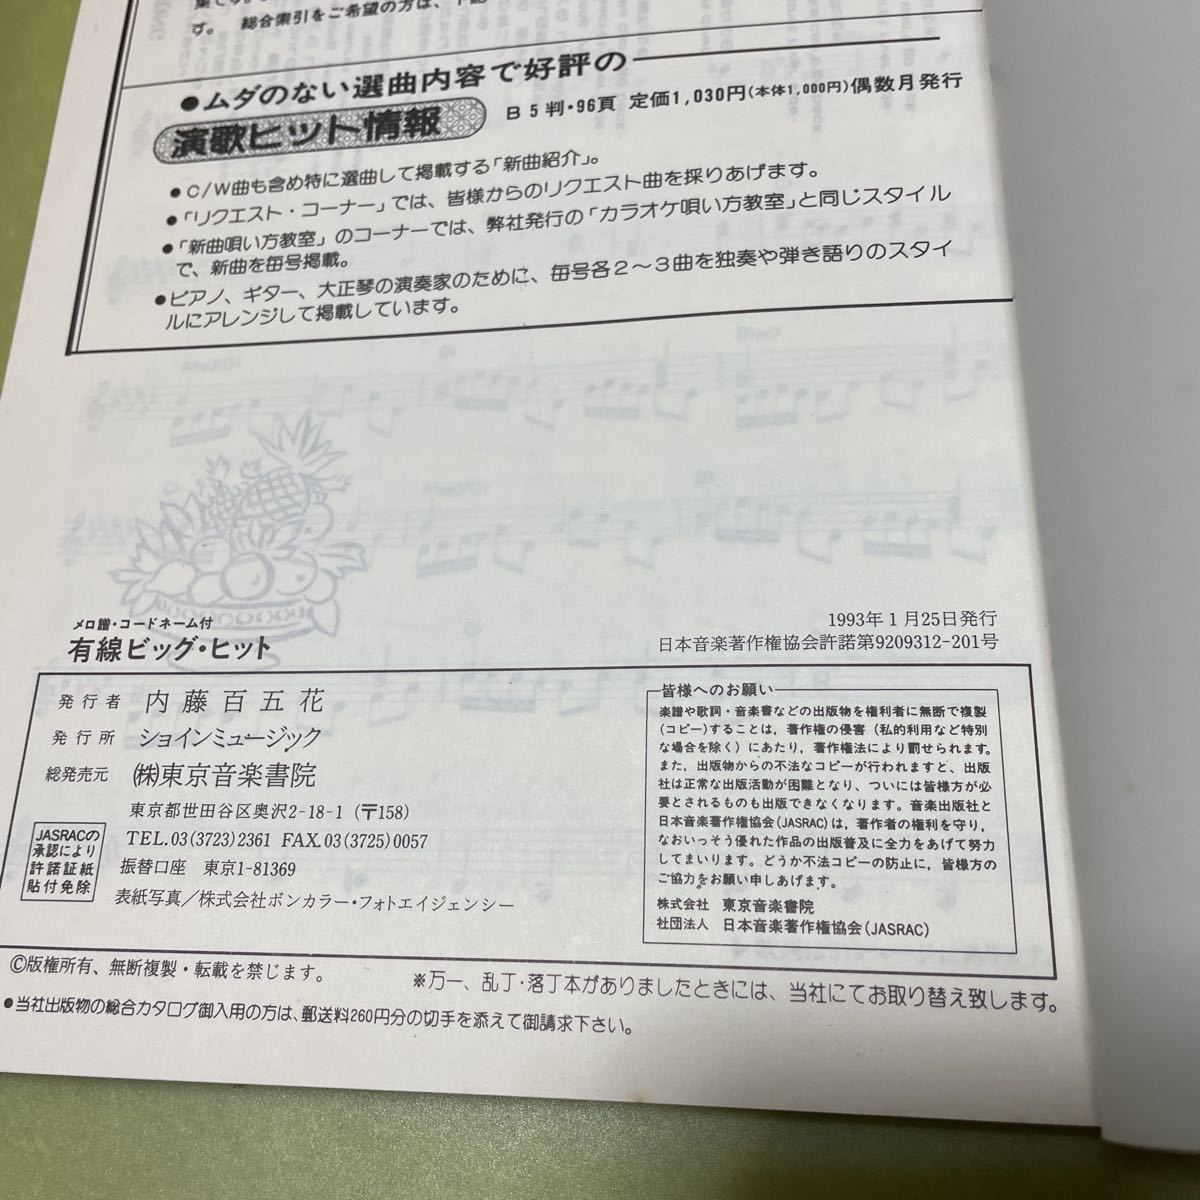 す。 総合索引をご希望の方は、下記
●ムダのない選曲内容で好評の
演歌ヒット情報 B5判・96頁 定価1,030円(本体1,000円)偶数月発行
●C/W曲も含め特に選曲して掲載する「新曲紹介」。
●「リクエスト・コーナー」では、皆様からのリクエスト曲を採りあげます。
●「新曲唄い方教室」のコーナーでは、弊社発行の「カラオケ唄い方教室」と同じスタイル
で、新曲を毎号掲載。
●ピアノ、ギター、大正琴の演奏家のために、毎号各2～3曲を独奏や弾き語りのスタイ
ルにアレンジして掲載しています。
メロ譜・コードネーム付
有線ビッグ・ヒット
1993年1月25日発行
日本音楽著作権協会許諾第9209312-201号
発行者 内藤百五花
発行所 ショインミュージック
総発売元 ㈱東京音楽書院
東京都世田谷区奥沢2-18-1(〒158)
TEL.03(3723)2361 FAX.03(3725)0057
振替口座 東京1-81369
表紙写真/株式会社ボンカラー・フォトエイジェンシー
JASRACの
承認により
許諾証紙
貼付免除
皆様へのお願い
楽譜や歌詞・音楽書などの出版物を権利者に無断で複製
(コピー)することは，著作権の侵害(私的利用など特別
な場合を除く)にあたり，著作権法により罰せられます。
また，出版物からの不法なコピーが行われますと，出版
社は正常な出版活動が困難となり，ついには皆様方が必
要とされるものも出版できなくなります。音楽出版社と
日本音楽著作権協会(JASRAC)は，著作者の権利を守り，
なおいっそう優れた作品の出版普及に全力をあげて努力
してまいります。どうか不法コピーの防止に，皆様方の
ご協力をお願い申しあげます。
株式会社 東京音楽書院
社団法人 日本音楽著作権協会(JASRAC)
©版権所有、無断複製・転載を禁じます。
※万一、乱丁・落丁本がありましたときには、当社にてお取り替え致します。
●当社出版物の総合カタログ御入用の方は、郵送料260円分の切手を添えて御請求下さい。